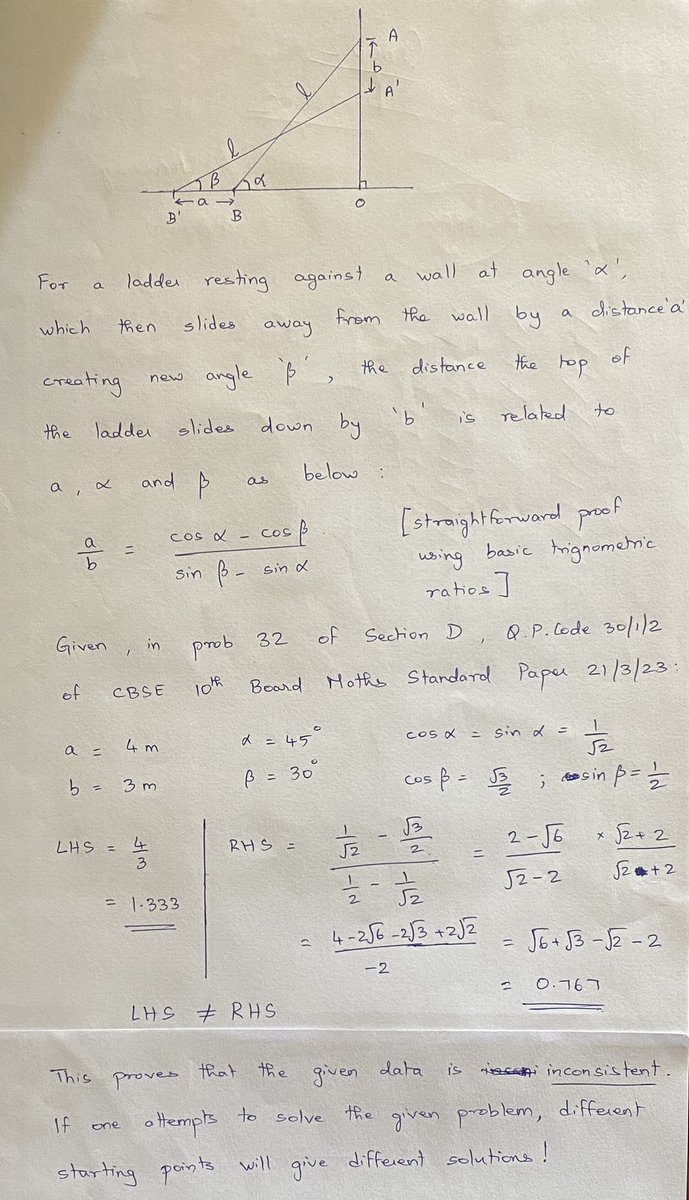 A
b
A'
l
l
β
α
a
B'
B
O
For a ladder resting against a wall at angle 'α',
which then slides away from the wall by a distance 'a'
creating new angle 'β', the distance the top of
the ladder slides down by 'b' is related to
a, α and β as below :
a/b = (cos α - cos β)/(sin β - sin α) [straightforward proof
using basic trignometric
ratios]
Given, in prob 32 of Section D, Q.P. Code 30/1/2
of CBSE 10th Board Maths Standard Paper 21/3/23:
a = 4 m α = 45° cos α = sin α = 1/√2
b = 3 m β = 30° cos β = √3/2 ; sin β = 1/2
LHS = 4/3 RHS = (1/√2 - √3/2)/(1/2 - 1/√2) = (2-√6)/(√2-2) × (√2+2)/(√2+2)
= 1.333
= (4-2√6-2√3+2√2)/-2 = √6+√3-√2-2
= 0.767
LHS ≠ RHS
This proves that the given data is inconsistent.
If one attempts to solve the given problem, different
starting points will give different solutions!